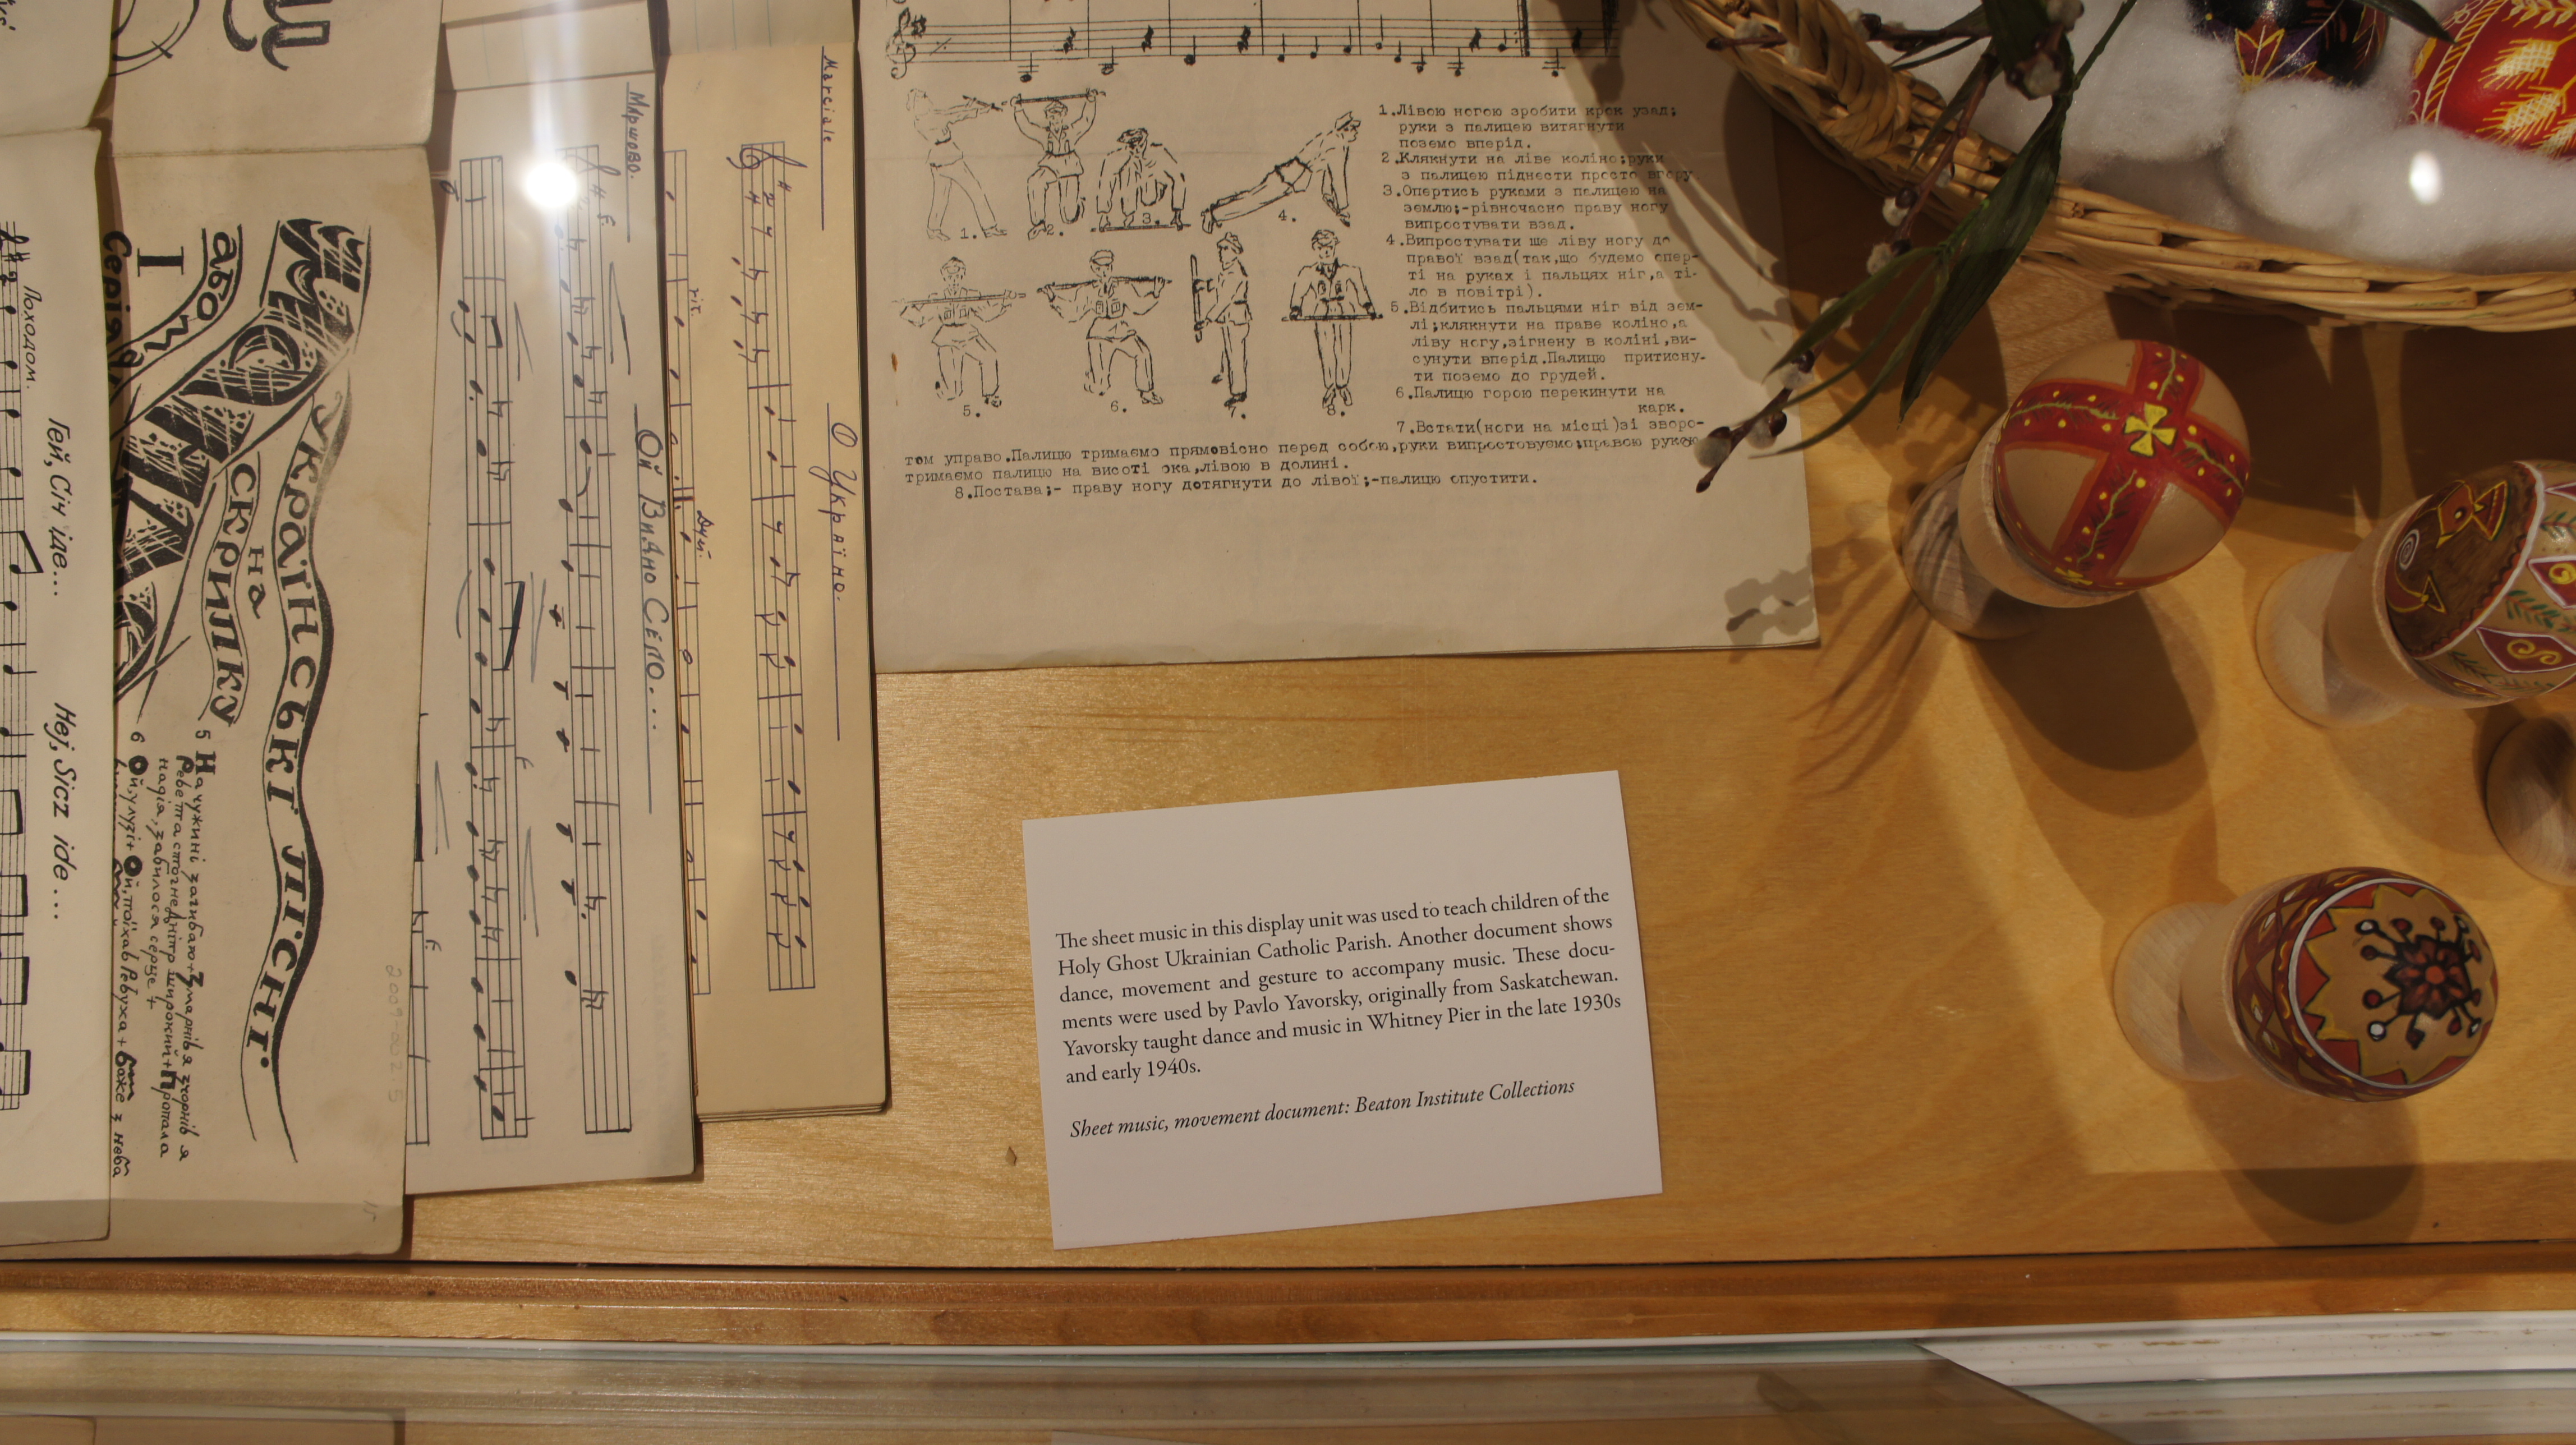 Походом.
Гей, Січ іде...
Hej, Sicz ide ...
або
І
Серія
УКРАЇНСЬКІ ПІСНІ
на
скрипку
5 На чужині загибаю +
6
Маршово.
Ой Видно Село...
Marciale
rit.
О Україно.
1. 2. 3. 4.
5. 6. 7. 8.
1.Лівою ногою зробити крок узад;
руки з палицею витягнути
поземо вперід.
2.Клякнути на ліве коліно;руки
з палицею піднести просто вгору
3.Опертись руками з палицею на
землю;-рівночасно праву ногу
випростувати взад.
4.Випростувати ще ліву ногу до
правої взад(так,що будемо опер-
ті на руках і пальцях ніг,а ті-
ло в повітрі).
5.Відбитись пальцями ніг від зем-
лі;клякнути на праве коліно,а
ліву ногу,зігнену в коліні,ви-
сунути вперід.Палицю притисну-
ти поземо до грудей.
6.Палицю горою перекинути на
карк.
7.Встати(ноги на місці)зі зворо-
том управо.Палицю тримаємо прямовісно перед собою,руки випростовуємо;правою рукою
тримаємо палицю на висоті ока,лівою в долині.
8.Постава;- праву ногу дотягнути до лівої;-палицю опустити.
The sheet music in this display unit was used to teach children of the
Holy Ghost Ukrainian Catholic Parish. Another document shows
dance, movement and gesture to accompany music. These docu-
ments were used by Pavlo Yavorsky, originally from Saskatchewan.
Yavorsky taught dance and music in Whitney Pier in the late 1930s
and early 1940s.
Sheet music, movement document: Beaton Institute Collections